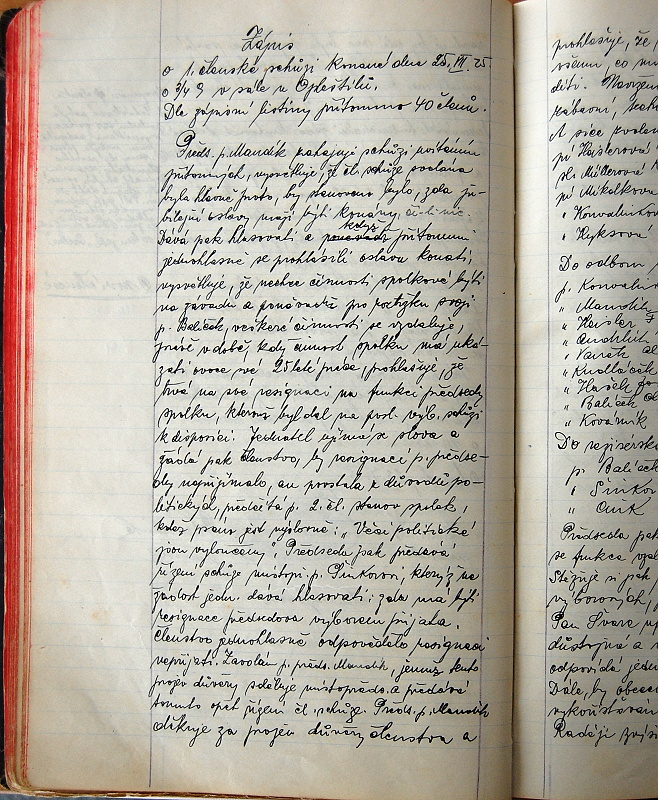 Zápis
o čl. členské schůzi konané dne 25. VII. 25
o ¾ 9 v sále u Opletštilů.
Dle zápisní listiny přítomno 40 členů.
Předs. p. Mandík zahajuje schůzi uvítáním
přítomných, vysvětluje, že čl. schůze svolána
byla hlavně proto, by stanoveno bylo, zda ju-
bilejní oslavy mají býti konány, či-li nic.
Dává pak hlasovati a když přítomní
jednohlasně se prohlásili oslavu konati,
vysvětluje, že nechce činnosti spolkové býti
na závadu a ponévadž pro roztržku svojí
p. Balíček, veškeré činnosti se vzdaluje,
právě v době, kdy činnost spolku má uká-
zati ovoce své 25leté práce, prohlašuje, že
trvá na své resignaci na funkci předsedy
spolku, kterouž byl dal na posl. výb. schůzi
k disposici. Jednatel ujímá se slova a
žádá pak členstvo, by resignaci p. předse-
dy nepřijímalo, an povstala z důvodů po-
litických, předčítá p. 2. čl. stanov spolek,
kdež psáno jest výslovně: „Věci politické
jsou vyloučeny". Předseda pak předává
řízení schůze místopř. p. Šinkorovi, kterýž na
žádost jedn. dává hlasovati: zda má býti
resignace předsedova výborem přijata.
Členstvo jednohlasně odpovědělo resignaci
nepřijati. Zavolán p. předs. Mandík, jemuž tento
projev důvěry sděluje místopředs. a předává
tomuto opět řízení čl. schůze. Předs. p. Mandík
děkuje za projev důvěry členstva a
prohlašuje, že
všemu, co
dětí. Navržen
zábavní,
A sice
pí Hajslerová
sl. Müllerová
pí Mikolkova
" Konvalinkov
" Hyksová
Do odboru
p. Konvalin
" Mandík
" Hajsler F
" Vaněk
" Kudláček
" Hašek
" Balíček
" Kovárník
Do rejisérsk
p. Balíček
" Šinkor
" Cink
Předseda pak
se funkce
Stěžuje si pak
výborových,
Pan Švarc
důstojná a
odpovídá jedn
Dále, by obecen
vykořisťován
Raději zvýš